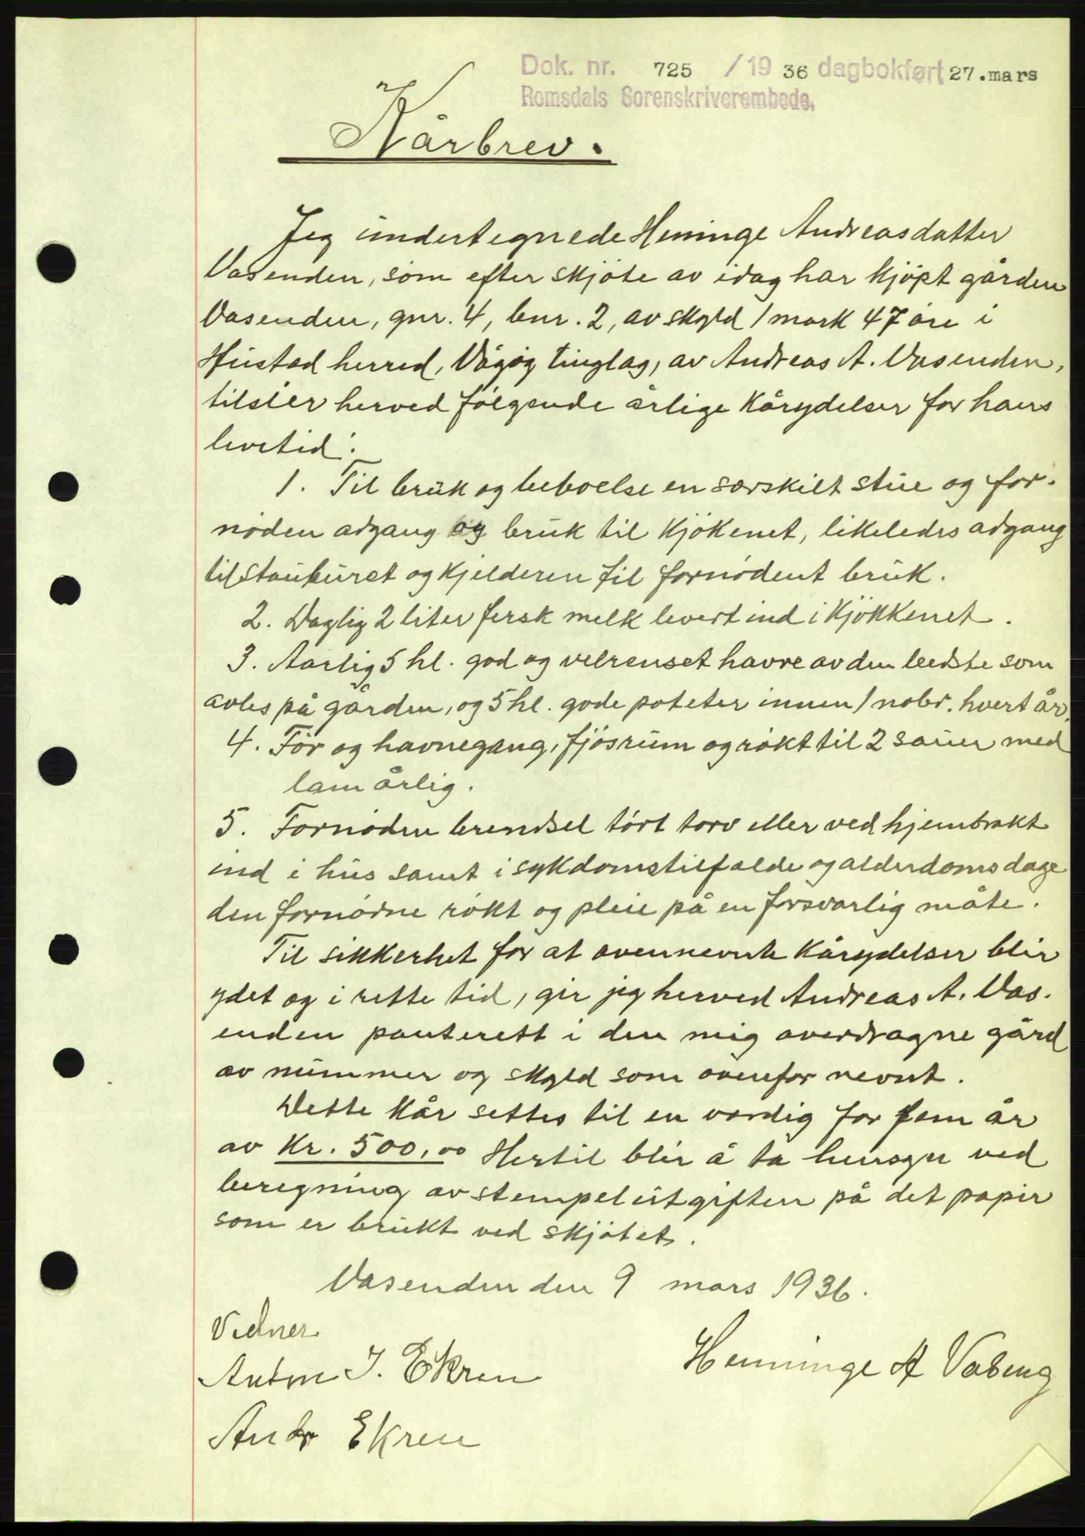 Dok. nr. 725 /19 36 dagbokført 27.mars
Romsdals Sorenskriverembede.
Kårbrev.
Jeg undertegnede Henninge Andreasdatter
Vasenden, som efter skjöte av idag har kjöpt gården
Vasenden, gnr. 4, bnr. 2, av skyld 1 mark 47 öre i
Hustad herred, Vågøy tinglag, av Andreas A. Vasenden,
tilsier herved fölgende årlige kårydelser for hans
levetid:
1. Til bruk og beboelse en særskilt stue og for-
nöden adgang og bruk til kjökenet, likeledes adgang
til stauburet og kjelderen til fornödent bruk.
2. Daglig 2 liter fersk melk levert ind i kjökkenet.
3. Aarlig 5 hl. god og velrenset havre av den bedste som
avles på gården, og 5 hl. gode poteter innen 1 nobr. hvert år.
4. Fôr og havnegang, fjösrum og rökt til 2 sauer med
lam årlig.
5. Fornöden brendsel tört torv eller ved hjembrakt
ind i hus samt i sykdomstilfælde og alderdomsdage
den fornödne rökt og pleie på en forsvarlig måte.
Til sikkerhet for at ovennevnte kårydelser blir
ydet og i rette tid, gir jeg herved Andreas A. Vas-
enden panterett i den mig overdragne gård
av nummer og skyld som ovenfor nevnt.
Dette kår settes til en verdig for fem år
av Kr. 500,00 Hertil blir å ta hensyn ved
beregning av stempelutgiften på det papir
som er brukt ved skjötet.
Vasenden den 9 mars 1936.
Vidner
Anton J. Ekren
Henninge A Vaseng
Andr Ekren